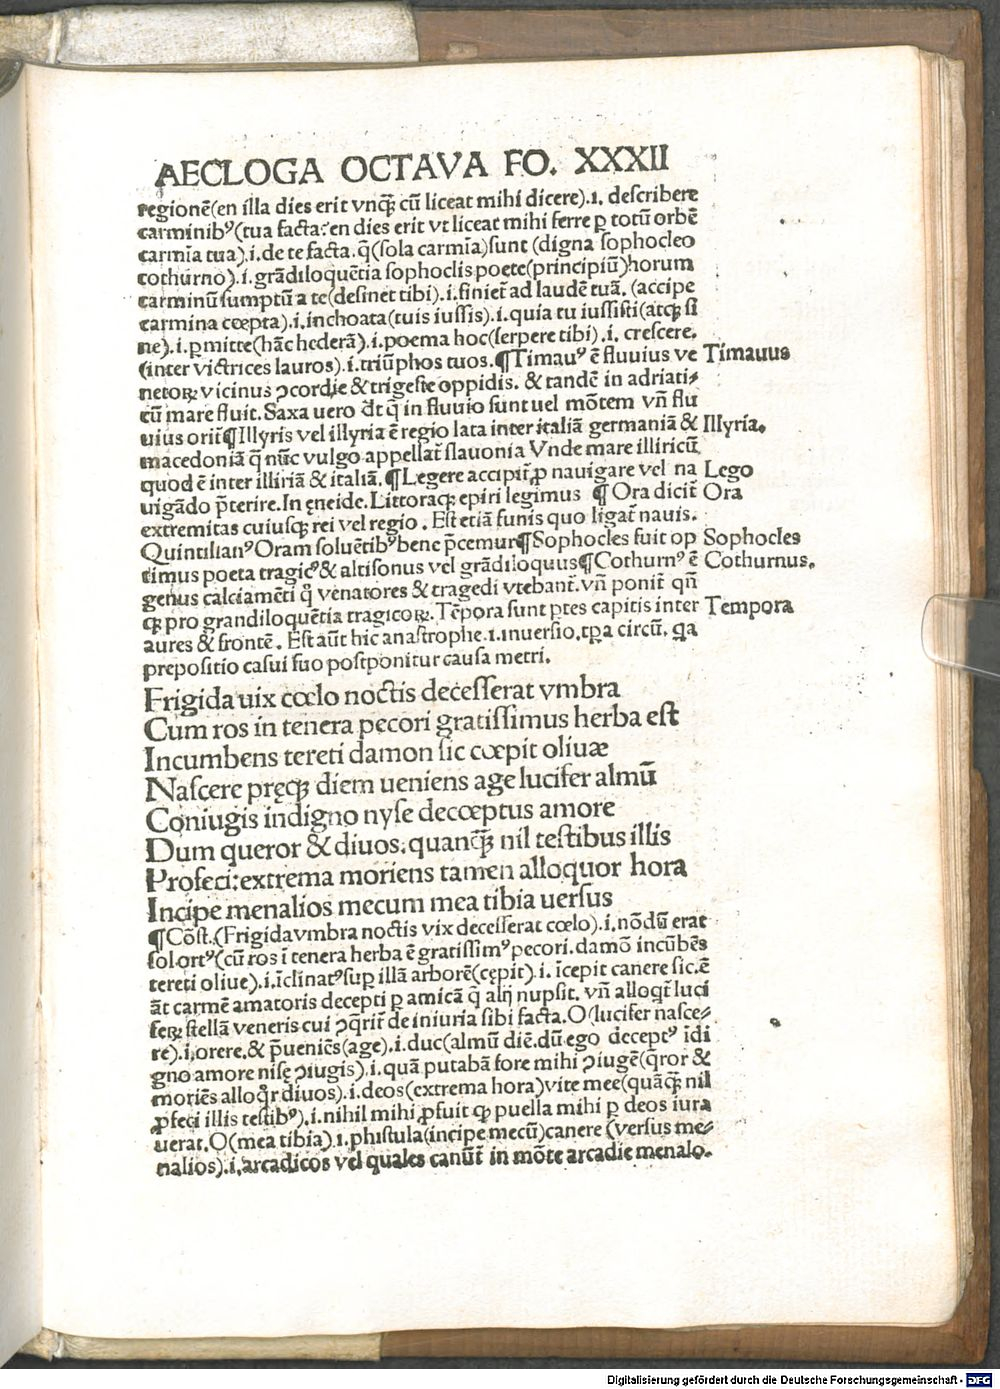 AECLOGA OCTAVA FO. XXXII
regionē(en illa dies erit vnqȝ cū liceat mihi dicere).i. describere
carminibꝰ(tua facta:en dies erit vt liceat mihi ferre ꝑ totū orbē
carmīa tua).i.de te facta.q̄(sola carmīa)sunt (digna sophocleo
cothurno).i.grādiloquētia sophoclis poete(principiū)horum
carminū sumptū a te(desinet tibi).i.finiet ad laudē tuā. (accipe
carmina cœpta).i.inchoata(tuis iussis).i.quia tu iussisti(atqȝ si
ne).i.ꝑmitte(hāc hederā).i.poema hoc(serpere tibi).i. crescere.
(inter victrices lauros).i.triūphos tuos.¶Timauꝰ ē fluuius ve
Timauus
netoꝝ vicinus ꝯcordie & trigeste oppidis. & tandē in adriati⸗
cū mare fluit.Saxa uero dr̄t q̄ in fluuio sunt uel mōtem vn̄ flu
uius orit̄¶Illyris vel illyria ē regio lata inter italiā germaniā &
Illyria.
macedoniā q̄ nūc vulgo appellat̄ slauonia Vnde mare illiricū
quod ē inter illiriā & italiā.¶Legere accipit̄ ꝓ nauigare vel na
Lego
uigādo p̄terire.In ęneide.Littoraqȝ epiri legimus ¶ Ora dicit̄
Ora
extremitas cuiusqȝ rei vel regio. Est etiā funis quo ligat̄ nauis.
Quintilianꝰ Oram soluētibꝰ bene p̄cemur¶Sophocles fuit op
Sophocles
timus poeta tragicꝰ & altisonus vel grādiloquus¶Cothurnꝰ ē
Cothurnus.
genus calciamēti q̊ venatores & tragedi vtebant̄. vn̄ ponit̄ qn̄
qȝ pro grandiloquētia tragicoꝝ.Tēpora sunt ꝑtes capitis inter
Tempora
aures & frontē. Est aūt hic anastrophe.i.inuersio.tꝑa circū. qa
prepositio casui suo postponitur causa metri.
Frigida uix cœlo noctis decesserat vmbra
Cum ros in tenera pecori gratissimus herba est
Incumbens tereti damon sic cœpit oliuæ
Nascere pręqȝ diem ueniens age lucifer almū
Coniugis indigno nyse decœptus amore
Dum queror & diuos:quanqȝ̄ nil testibus illis
Profeci:extrema moriens tamen alloquor hora
Incipe menalios mecum mea tibia uersus
¶Cōst.(Frigida vmbra noctis vix decesserat cœlo).i.nōdū erat
sol ortꝰ(cū ros ī tenera herba ē gratissimꝰ pecori.damō incūbēs
tereti oliue).i.īclinatꝰ sup illā arborē(cępit).i. īcepit canere sic.ē
āt carmē amatoris decepti ꝑ amicā q̄ alij nupsit. vn̄ alloqt̄ luci
feꝝ stellā veneris cui ꝯqrit̄ de iniuria sibi facta.O(lucifer nasce⸗
re).i.orere.& p̄ueniēs(age).i.duc(almū diē.dū ego deceptꝰ īdi
gno amore nisę ꝯiugis).i.quā putabā fore mihi ꝯiugē(q̄ror &
moriēs alloqr̊ diuos).i.deos(extrema hora)vite mee(quāqȝ̄ nil
ꝓfeci illis testibꝰ).i.nihil mihi ꝓfuit qȝ puella mihi ꝑ deos iura
uerat.O(mea tibia).i.phistula(incipe mecū)canere (versus me⸗
nalios).i.arcadicos vel quales canūt̄ in mōte arcadie menalo.
Digitalisierung gefördert durch die Deutsche Forschungsgemeinschaft - DFG